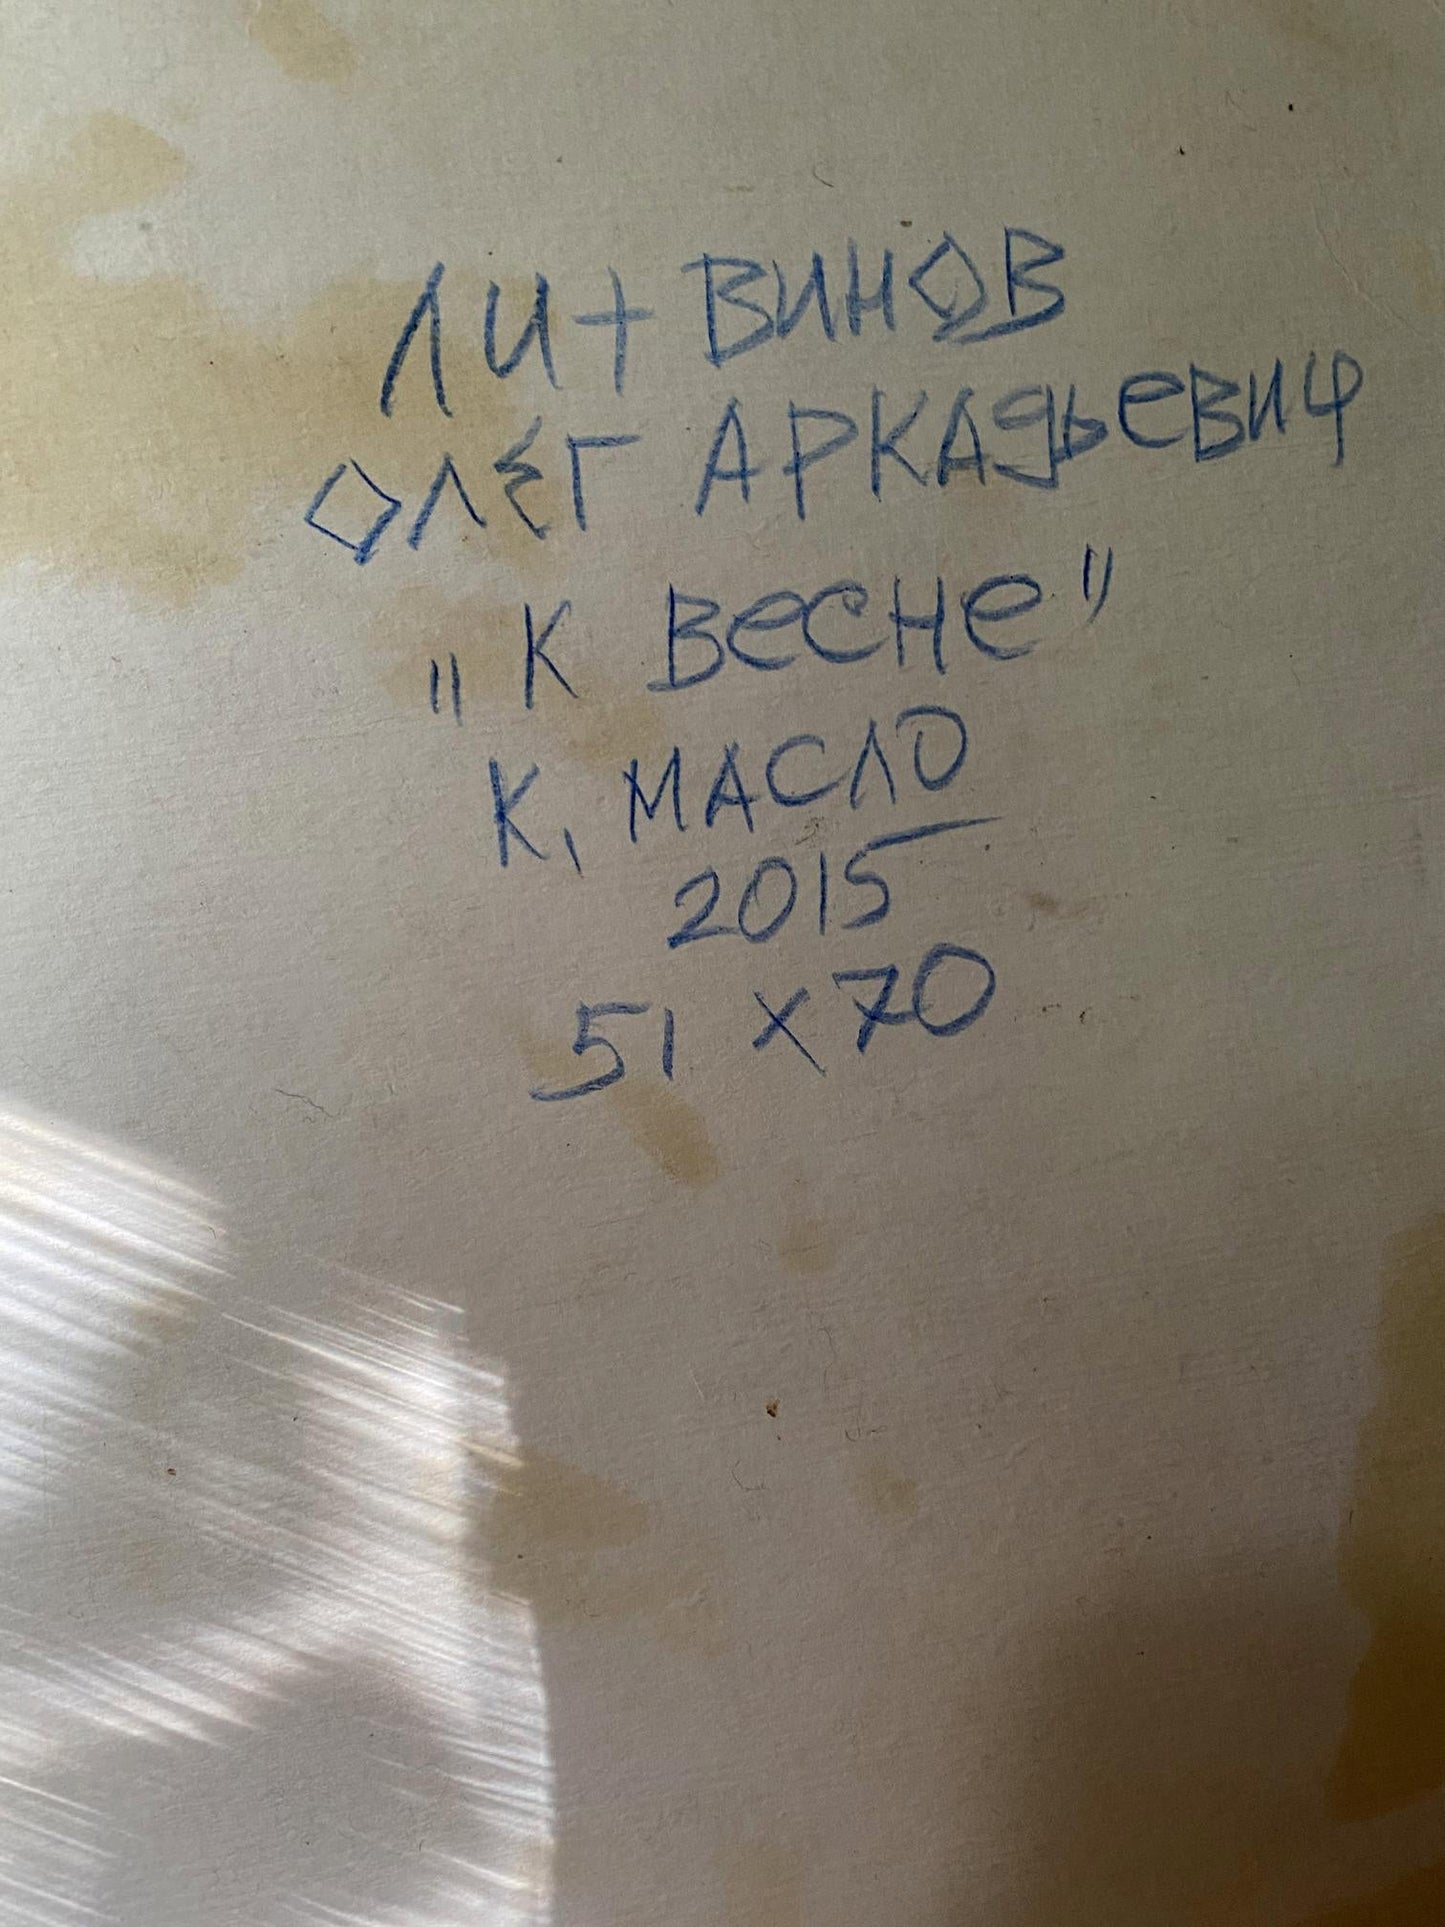 ЛИТВИНОВ
ОЛЕГ АРКАДЬЕВИЧ
„К ВЕСНЕ"
К, МАСЛО
2015
51 х 70